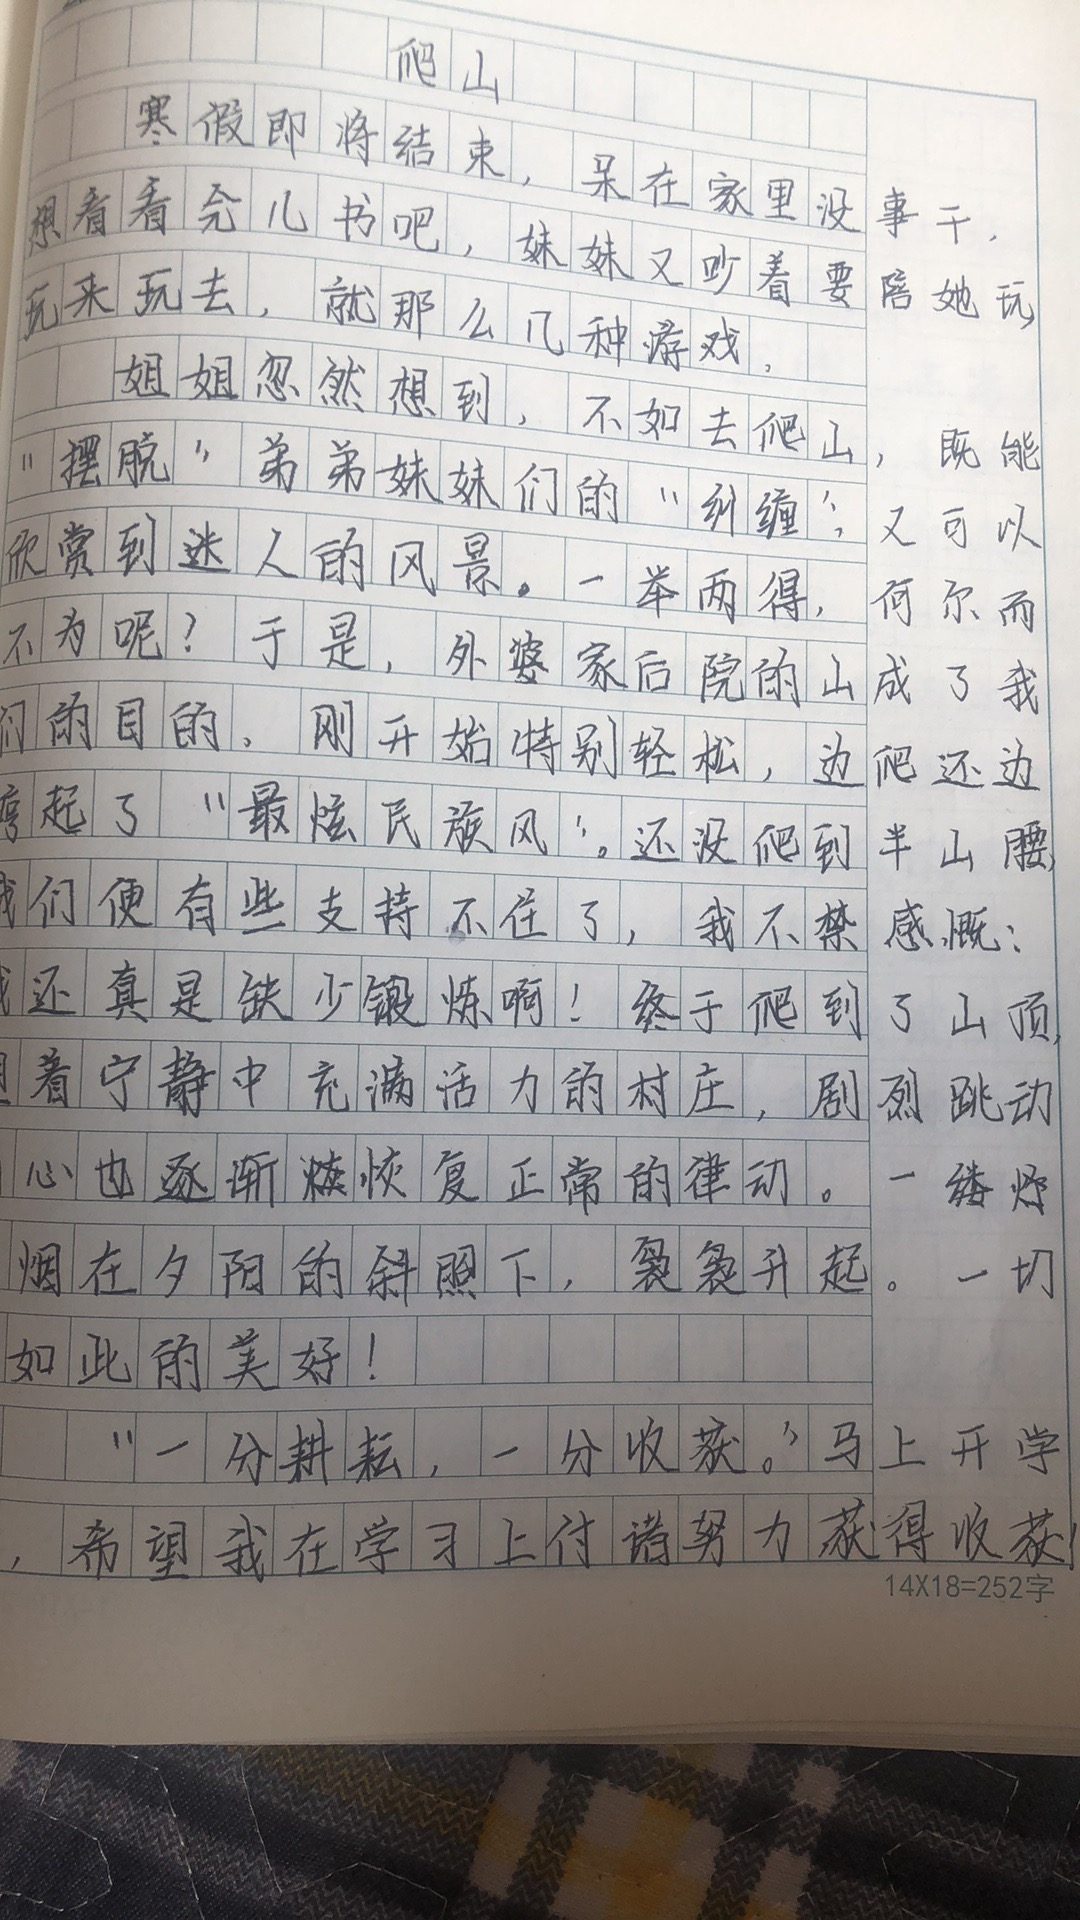 爬山
寒假即将结束，呆在家里没事干，
想看看完儿书吧，妹妹又吵着要陪她玩，
玩来玩去，就那么几种游戏，
姐姐忽然想到，不如去爬山，既能
“摆脱”弟弟妹妹们的“纠缠”，又可以
欣赏到迷人的风景。一举两得，何尔而
不为呢？于是，外婆家后院的山成了我
们的目的，刚开始特别轻松，边爬还边
哼起了“最炫民族风”。还没爬到半山腰，
我们便有些支持不住了，我不禁感慨：
我还真是缺少锻炼啊！终于爬到了山顶，
着宁静中充满活力的村庄，剧烈跳动
心也逐渐恢复正常的律动。一缕炊
烟在夕阳的斜照下，袅袅升起。一切
如此的美好！
“一分耕耘，一分收获。”马上开学
，希望我在学习上付诸努力获得收获！
14X18=252字